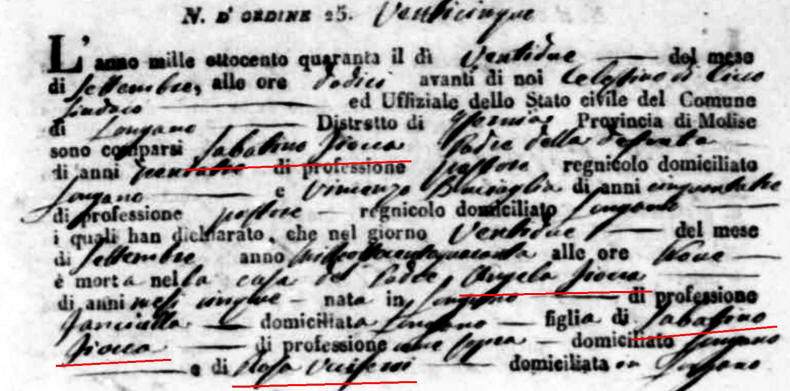 N. D'ORDINE 25. Venticinque
L'anno mille ottocento quaranta il di Ventidue del mese
di Settembre, alle ore dodici avanti di noi Celestino di Cicco
Sindaco ed Uffiziale dello Stato civile del Comune
di Longano Distretto di Isernia Provincia di Molise
sono comparsi Sabatino Fiocca Padre della defunta
di anni di professione pastore regnicolo domiciliato
Longano e Vincenzo di anni cinquantatre
di professione pastore regnicolo domiciliato Longano
i quali han dichiarato, che nel giorno Ventidue del mese
di Settembre anno milleottocentoquaranta alle ore Nove
è morta nella casa del Padre Angela Fiocca
di anni mesi cinque nata in Longano di professione
fanciulla domiciliata Longano figlia di Sabatino
Fiocca di professione come sopra domiciliato Longano
e di Rosa domiciliata in Longano